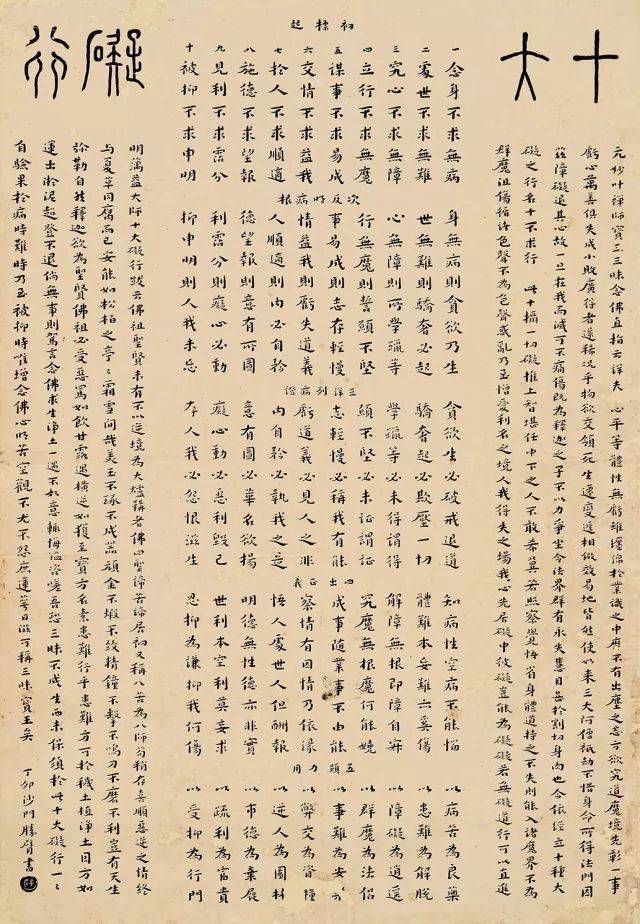 十大
礙行
元妙叶禪師寶王三昧念佛直指云詳夫 心平等體性無虧雖纏綿於業識之中靡不有出塵之志方欲究道魔境先彰一事
虧心萬善俱失成小敗廣得者還稀況乎物欲交傾死生遷變遞相倣效易地皆然使如來三大阿僧祇劫不惜身命所得法門因
茲障礙退其心故一旦在我而滅可不痛傷既為釋迦之子不以力爭坐令法界群有永失慧目甚於割切身肉也今依經立十種大
礙之行名十不求行 此十攝一切礙惟上智堪任中下之人不敢希冀若照察覺悟省身體道持之不失則能入諸魔界不為
群魔沮傷循諸色聲不為色聲惑亂乃至憎愛利名之境人我得失之場我心先居礙中彼礙豈能為礙礙若無礙道行可以直進
初標起
一念身不求無病
二處世不求無難
三究心不求無障
四立行不求無魔
五謀事不求易成
六交情不求益我
七於人不求順適
八施德不求望報
九見利不求霑分
十被抑不求申明
次反明病根
身無病則貪欲乃生
世無難則驕奢必起
心無障則所學躐等
行無魔則誓願不堅
事易成則志存輕慢
情益我則虧失道義
人順適則內必自矜
德望報則意有所圖
利霑分則癡心必動
抑申明則人我未忘
三詳列病證
貪欲生必破戒退道
驕奢起必欺壓一切
學躐等必未得謂得
願不堅必未證謂證
志輕慢必稱我有能
虧道義必見人之非
內自矜必執我之是
意有圖必華名欲揚
癡心動必惡利毀己
存人我必怨恨滋生
四出正義
知病性空病不能惱
體難本妄難亦奚傷
解障無根即障自寂
究魔無根魔何能嬈
成事隨業事不由能
察情有因情乃依緣
悟人處世人但酬報
明德無性德亦非實
世利本空利莫妄求
忍抑為謙抑我何傷
五顯力用
以病苦為良藥
以患難為解脫
以障礙為逍遙
以群魔為法侶
以事難為安樂
以弊交為資糧
以逆人為園林
以市德為棄屣
以疏利為富貴
以受抑為行門
明蕅益大師十大礙行跋云佛祖聖賢未有不以逆境為大爐鞴者佛四聖諦苦諦居初又稱以苦為師苟稍存喜順惡逆之情終
與夏草同腐而已安能如松柏之亭亭霜雪間哉美玉不琢不成器頑金不煅不致精鐘不擊不鳴刀不磨不利豈有天生
彌勒自然釋迦欲為聖賢佛祖必受惡罵如飲甘露遇橫逆如獲至寶方名素患難行乎患難方可於穢土植淨土因方如
蓮出淤泥超登不退倘無事則篤言念佛求生淨土一遇不如意輒悔退咨嗟吾恐三昧不成生西未保須於此十大礙行一一
自驗果於病時難時乃至被抑時惟增念佛心明苦空觀不尤不怨庶蓮萼日滋可稱三昧寶王矣 丁卯沙門勝臂書